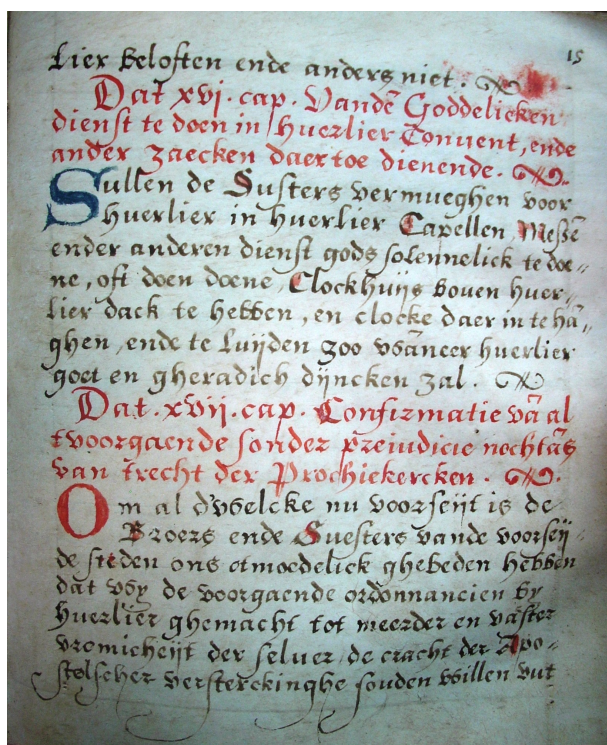 15
lier beloften ende anders niet.
Dat xvj. cap. Vandē Goddelicken
dienst te doen in huerlier Convent, ende
ander zaecken daer toe dienende.
Sullen de Susters vermueghen voor
huerlier in huerlier Capellen Messē
ender anderen dienst gods solennelick te doe=
ne, oft doen doene, Clockhuijs boven huer=
lier dack te hebben, en clocke daer in te hā=
ghen, ende te luijden zoo wānneer huerlier
goet en gheradich dijncken zal.
Dat. xvij. cap. Confirmatie vā al
tvoorgaende sonder preiudicie nochtās
van trecht der Prochiekercken.
Om al d'welcke nu voorseijt is de
Broers ende Suesters vande voorseij=
de steden ons otmoedelick ghebeden hebben
dat wy de voorgaende ordonnancien by
huerlier ghemacht tot meerder en vaster
vromicheijt der selver, de cracht der Apo=
stolscher versterckinghe souden willen wut